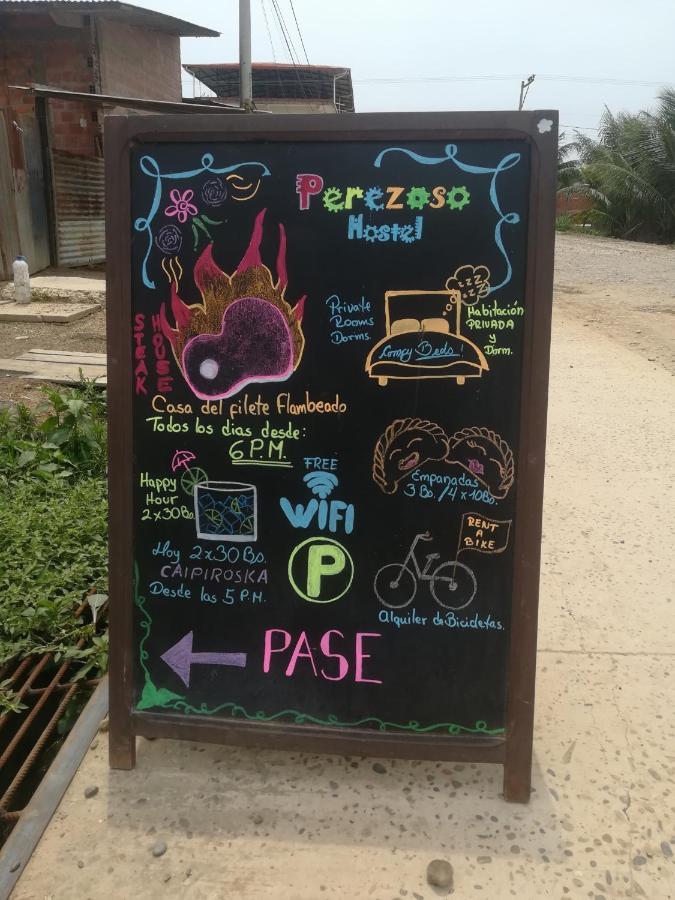 Perezoso
Hostel
STEAK
HOUSE
Private
Rooms
Dorms
zzz
zzz
Compy Beds
Habitación
PRIVADA
y
Dorm.
Casa del filete Flambeado
Todos los dias desde:
6 P.M.
Empanadas
3 Bs. / 4 x 10Bs.
Happy
Hour
2x30Bs.
FREE
WIFI
RENT
A
BIKE
Hoy 2x30 Bs.
CAIPIROSKA
Desde las 5 P.M.
P
Alquiler de Bicicletas.
PASE